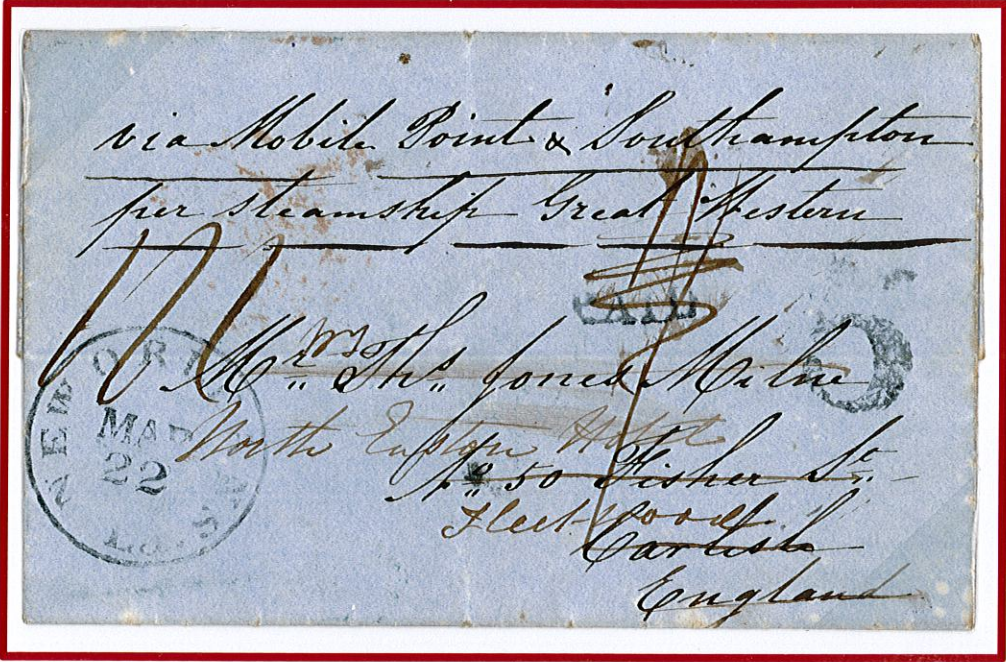 via Mobile Point & Southampton
per steamship Great Western
PAID
Mr. Ths. Jones Milne
North Euston Hotel
No. 50 Fisher St.
Fleetwood
Carlisle
England
NEW ORLEANS
MAR
22
LA.